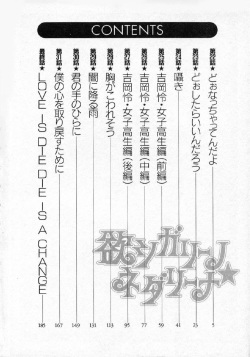 CONTENTS
★どぉなっちゃってんだよ 5
★どぉしたらいいんだろう 23
★囁き 41
★吉岡怜・女子高生編(前編) 59
★吉岡怜・女子高生編(中編) 77
★吉岡怜・女子高生編(後編) 95
★胸がこわれそう 113
★闇に降る雨 131
★君の手のひらに 149
★僕の心を取り戻すために 167
最終話★LOVE IS DIE DIE IS A CHANGE 185
欲シガリーノ
ネダリーナ★